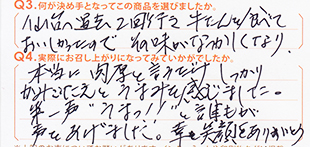 Q3.何が決め手となってこの商品を選びましたか。
仙台へ過去に2回行き牛たんを食べて
おいしかったので その味がなつかしくなり、
Q4.実際にお召し上がりになってみていかがでしたか。
本当に肉厚と言うだけしっかり
かみごたえとうまみを感じました。
第一声"うまっ!!"と誰もが
声をあげました。幸せ笑顔をありがとう